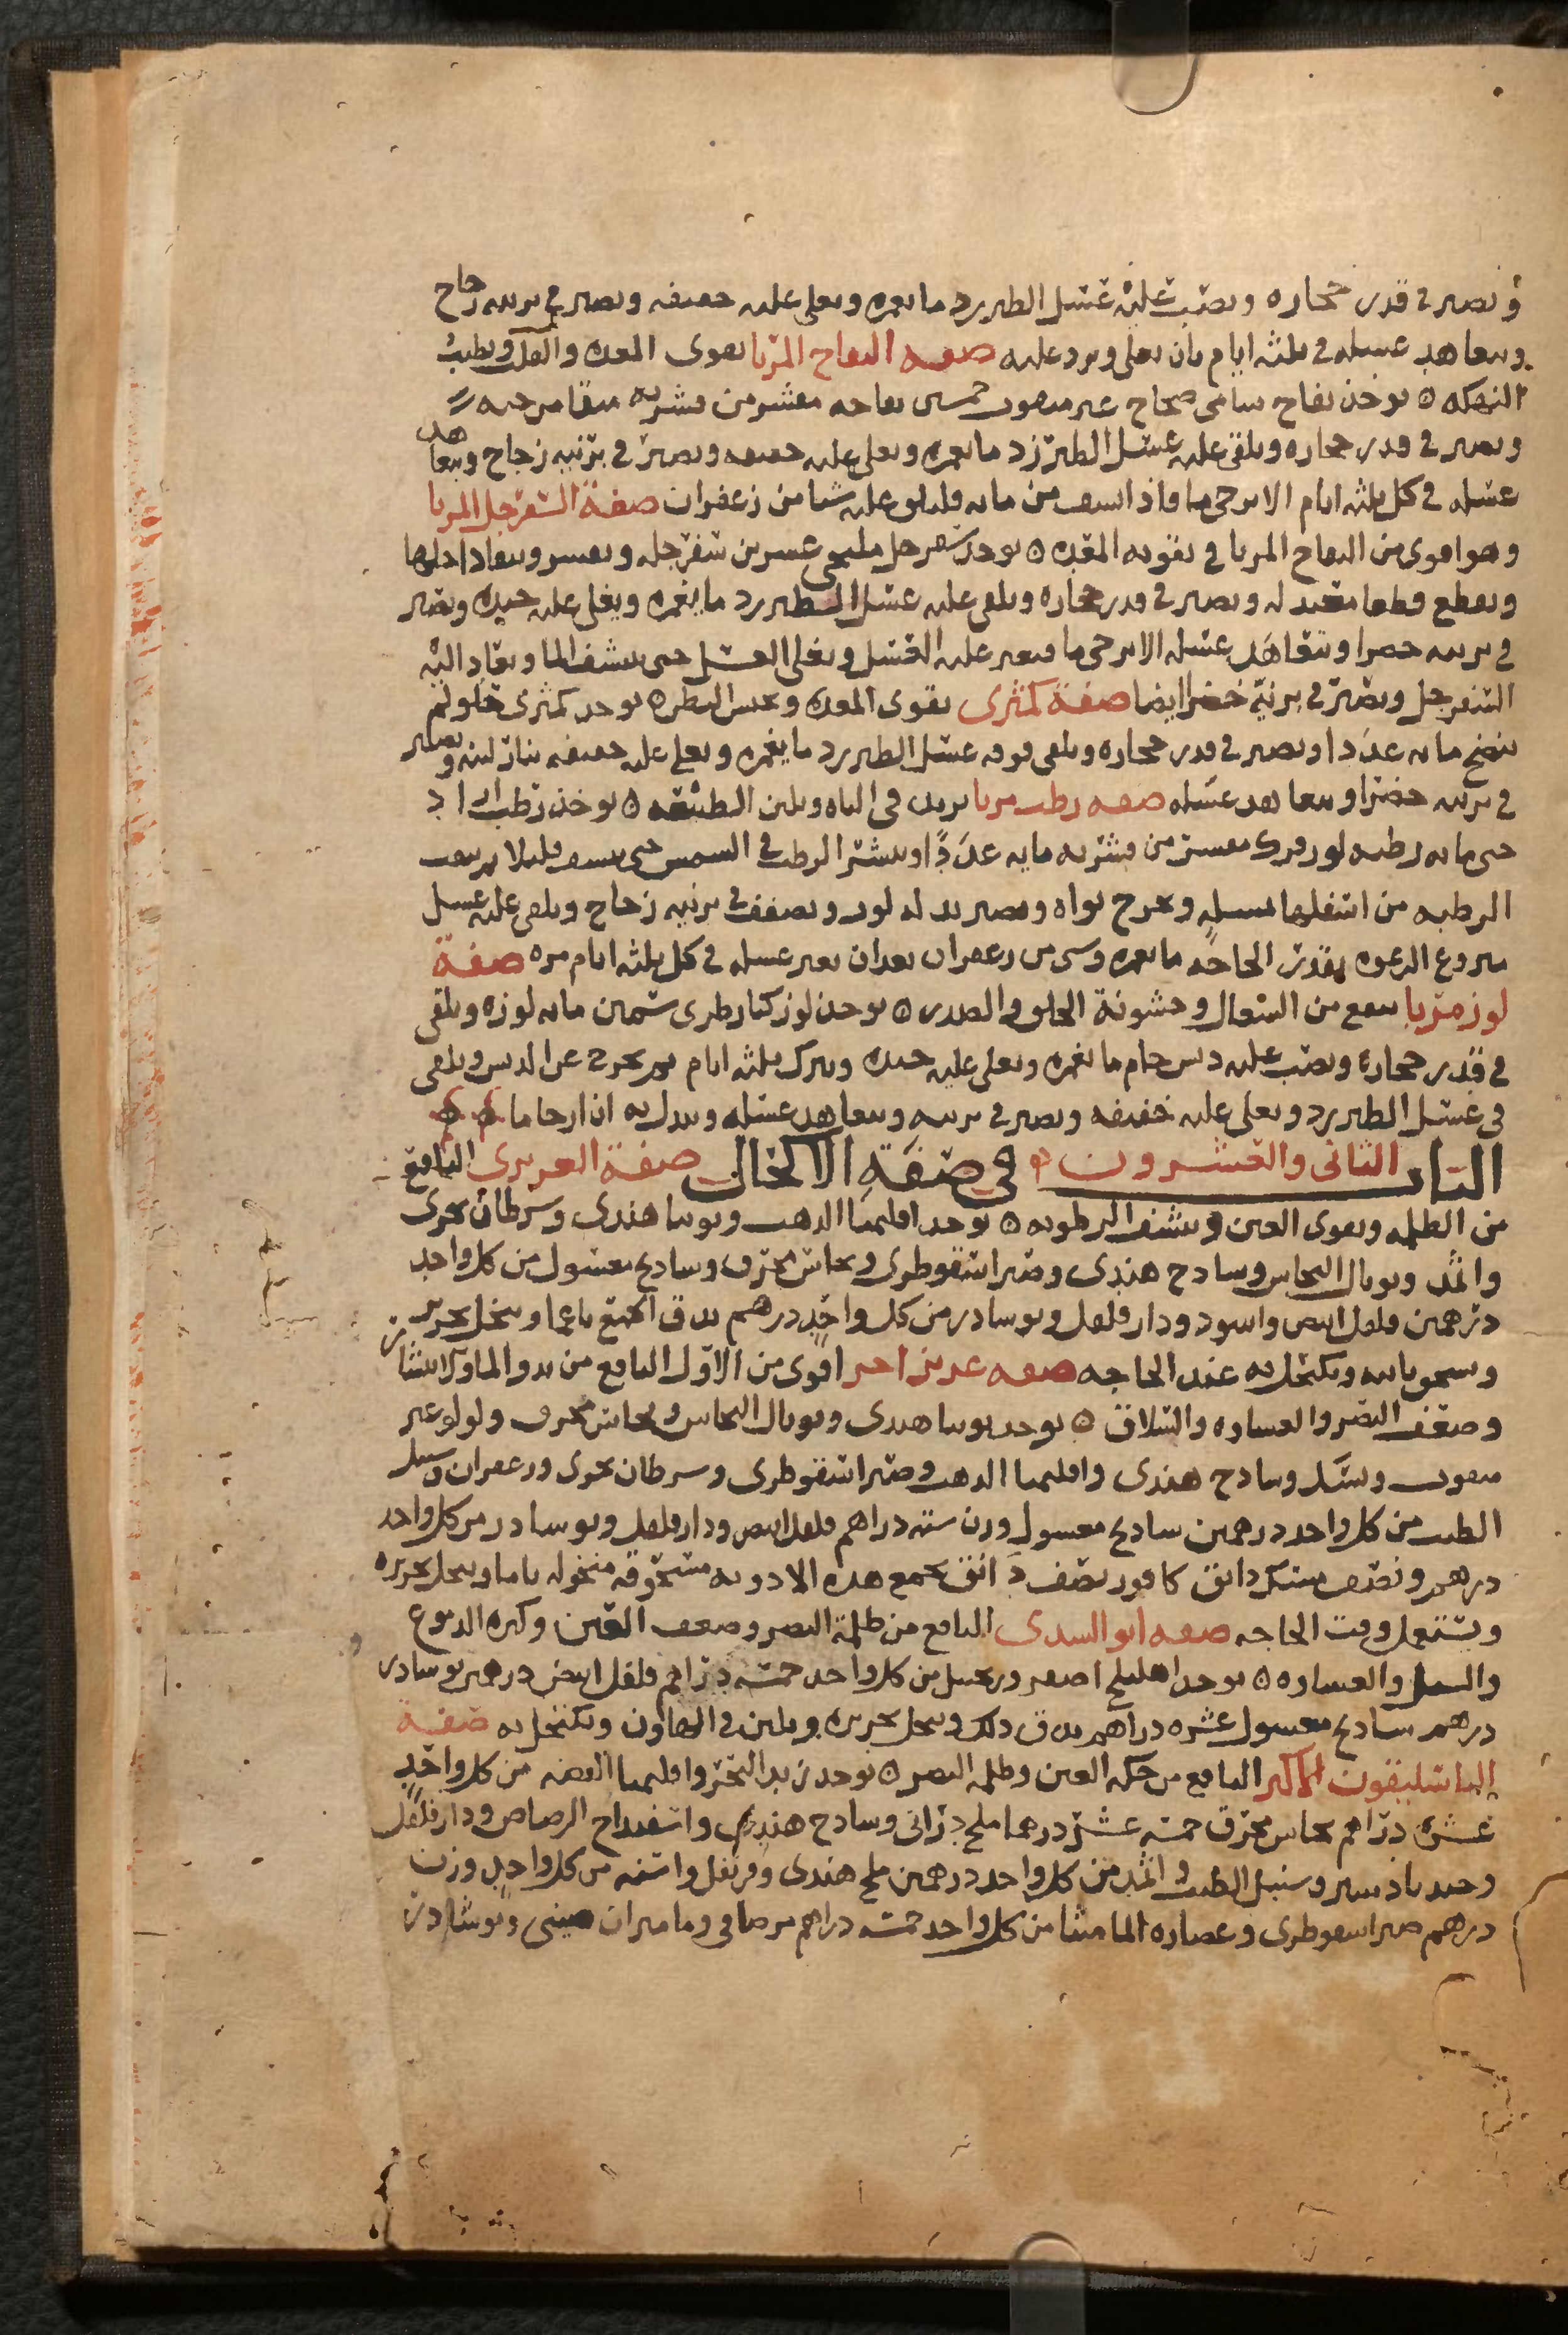 ويصير في قدر حجاره ويصب عليه عسل الطبرزد ما يغمره ويغلى عليه خفيفه ويصير في برنيه زجاج
ويتعاهد عسله في ثلثه ايام بان يغلى ويرد عليه صفه التفاح المربا يقوى المعده والقلب ويطيب
النكهه ٥ يوخذ تفاح شامي صحاح غير مثقوب خمسين تفاحه مقشر من قشره منقا من حبه
ويصير في قدر حجاره ويلقى عليه عسل الطبرزد ما يغمره ويغلى عليه خفيفه ويصير في برنيه زجاج ويتعاهد
عسله في كل ثلثه ايام الا يرخى ما فاذا نشف من مايه فليلق عليه شيا من زعفران صفة السفرجل المربا
وهو اقوى من التفاح المربا في تقويه المعده ٥ يوخذ سفرجل مليحي عشرين سفرجله ويقشر وينقا داخلها
ويقطع قطعا معتدله ويصير في قدر حجاره ويلقى عليه عسل الطبرزد ما يغمره ويغلى عليه جيده ويصير
في برنيه خضرا ويتعاهد عسله الا يرخى ما فيغير عليه العسل ويغلى العسل حتى ينشف الما ويعاد اليه
السفرجل ويصير في برنية خضرا ايضا صفة كمثرى يقوى المعده ويحبس البطن ٥ يوخذ كمثرى حلو لم
ينضج مايه عددا ويصير في قدر حجاره ويلقى فوقه عسل الطبرزد ما يغمره ويغلى عليه خفيفه بنار لينه ويصير
في برنيه خضرا ويتعاهد عسله صفه رطب مربا يزيد في الباه ويلين الطبيعه ٥ يوخذ رطب ازاد
جنى مايه رطبه لوز فرك مقشر من قشريه مايه عددا وينشر الرطب في الشمس حتى ينشف قليلا ثم يثقب
الرطبه من اسفلها بمسله ويخرج نواه ويصير بدله لوز ويصفف في برنيه زجاج ويلقى عليه عسل
منزوع الرغوه بقدر الحاجه ما يغمره وشى من زعفران بعد ان يغير عسله في كل ثلثه ايام مره صفة
لوز مربا ينفع من السعال وخشونة الحلق والصدر ٥ يوخذ لوز كبار طرى سمين مايه لوزه ويلقى
في قدر حجاره ويصب عليه دبس خام ما يغمره ويغلى عليه جيده ويترك ثلثه ايام ثم يخرج عن الدبس ويلقى
في عسل الطبرزد ويغلى عليه خفيفه ويصير في برنيه ويتعاهد عسله ويبدل به ان ارخا ما
الباب الثاني والعشرون في صفة الاكحال صفة العزيزى النافع
من الظلمه ويقوى العين وينشف الرطوبه ٥ يوخذ اقليميا الذهب وتوتيا هندى وسرطان بحرى
واثمد وتوبال النحاس وسادج هندى وصبر اسقوطرى ونحاس محرق وشادنج مغسول من كل واحد
درهمين فلفل ابيض واسود ودار فلفل ونوشادر من كل واحد درهم يدق الجميع ناعما وينخل بحرير
ويسحق بانيه ويكتحل به عند الحاجه صفه عزيز اخر اقوى من الاول النافع من بدو الما والانتشار
وضعف البصر والغشاوه والسلاق ٥ يوخذ توتيا هندى وتوبال النحاس ونحاس محرق ولولو غير
مثقوب وبسد وسادج هندى واقليميا الذهب وصبر اسقوطرى وسرطان بحرى وزعفران وسنبل
الطيب من كل واحد درهمين شادنج مغسول وزن سته دراهم فلفل ابيض ودار فلفل ونوشادر من كل واحد
درهم ونصف مسك دانق كافور نصف دانق يجمع هذه الادويه مسحوقه منخوله ناعما وينخل بحريره
ويستعمل وقت الحاجه صفه ابو السدى النافع من ظلمة البصر وضعف العين وكثره الدموع
والسبل والغشاوه ٥ يوخذ اهليلج اصفر وزنجبيل من كل واحد خمسه دراهم فلفل ابيض درهم نوشادر
درهم شادنج مغسول عشره دراهم يدق ذلك وينخل بحريره ويلين في الهاون ويكتحل به صفة
الباسليقون الاكبر النافع من حكه العين وظلمه البصر ٥ يوخذ زبد البحر واقليميا الفضه من كل واحد
عشره دراهم نحاس محرق خمسه عشر درهما ملح درانى وسادج هندى واسفيداج الرصاص ودار فلفل
وجندبادستر وسنبل الطيب واثمد من كل واحد درهمين ملح هندى وقرنفل واشنه من كل واحد وزن
درهم صبر اسقوطرى وعصاره المامثا من كل واحد خمسه دراهم مر صافى وماميران صينى ونوشادر